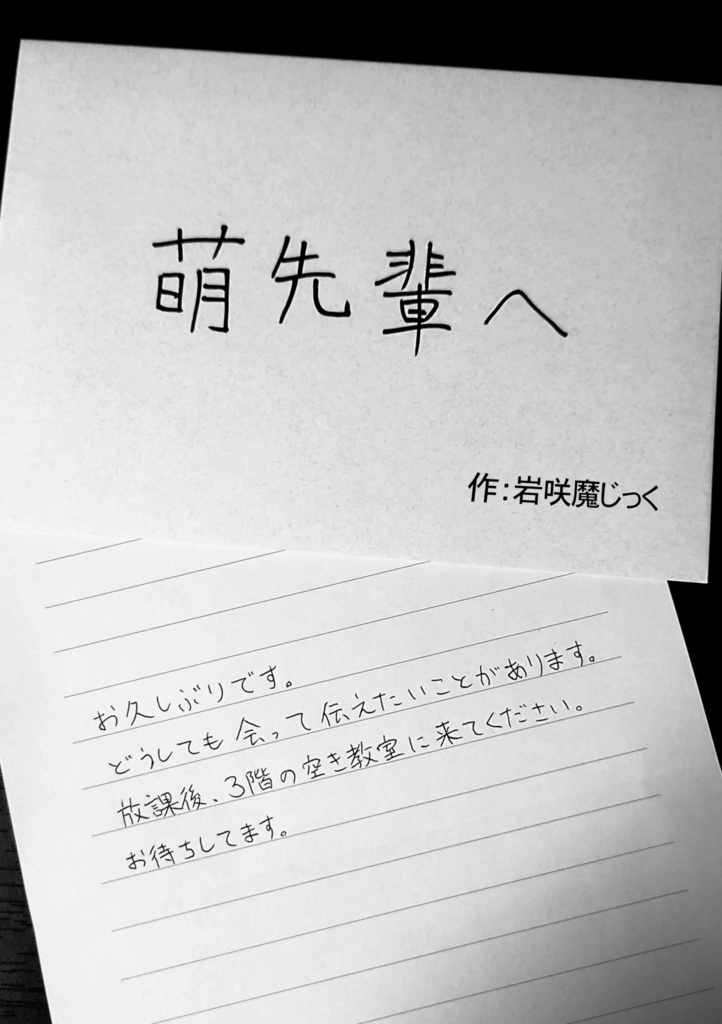 萌先輩へ
作:岩咲魔じっく
お久しぶりです。
どうしても会って伝えたいことがあります。
放課後、3階の空き教室に来てください。
お待ちしてます。